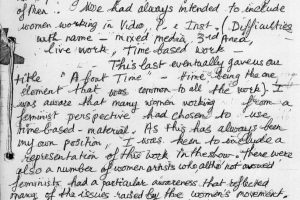 of men. I have had always intended to include
women working in Video, P. & Inst. (Difficulties
with name – mixed media, 3rd Area,
live work, Time-based work
This last eventually gave us our
title "A            Time" – time being the one
element that was common to all the work). I
was aware that many women working from a
feminist perspective had chosen to use
time-based-material. As this has always been
my own position, I was keen to include a
representation of this work in the show. There were
also a number of women artists who altho not avowed
feminists had a particular awareness that reflected
many of the issues raised by the women's movement.